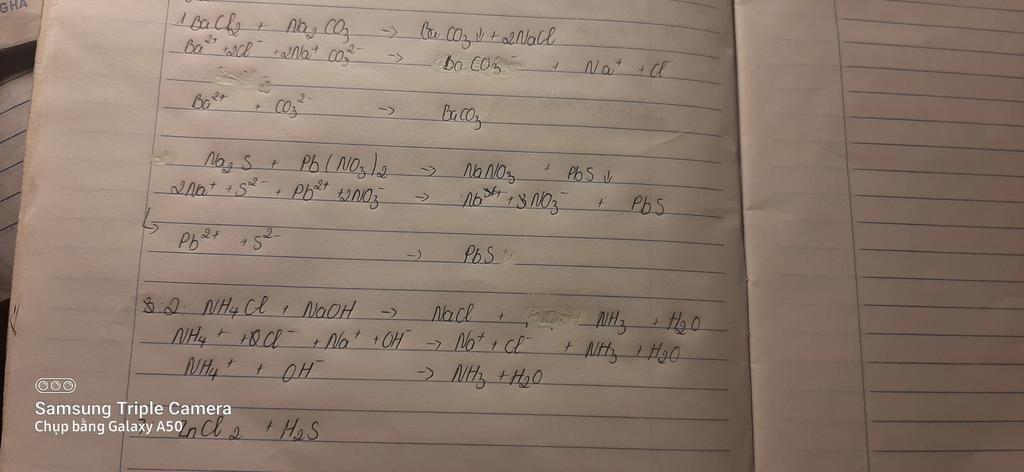 GHA
1 BaCl2 + Na2CO3 → BaCO3↓ + 2NaCl
Ba2+ + 2Cl- + 2Na+ CO3 2- → BaCO3 + Na+ + Cl
Ba2+ + CO3 2- → BaCO3
Na2S + Pb(NO3)2 → NaNO3 + PbS↓
2Na+ + S2- + Pb2+ + 2NO3- → Na+ + NO3- + PbS
Pb2+ + S2- → PbS
2. NH4Cl + NaOH → NaCl + NH3 + H2O
NH4+ + Cl- + Na+ + OH- → Na+ + Cl- + NH3 + H2O
NH4+ + OH- → NH3 + H2O
ZnCl2 + H2S
Samsung Triple Camera
Chụp bằng Galaxy A50